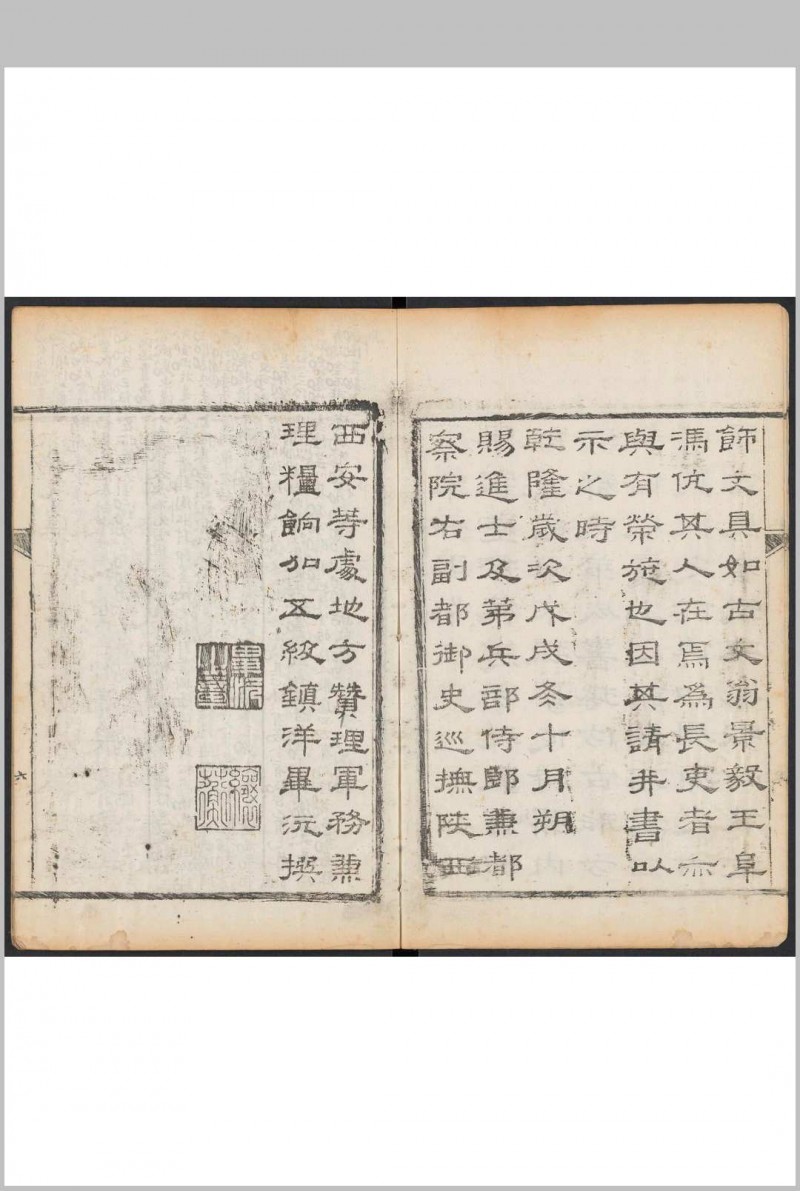 師文具如古文翁景毅王阜
馮伉其人在焉為長吏者亦
與有榮施也因其請并書以
示之時
乾隆歲次戊戌冬十月朔
賜進士及苐兵部侍郎兼都
察院右副都御史巡撫陝西
西安等處地方贊理軍務兼
理糧餉加五級鎮洋畢沅撰
六